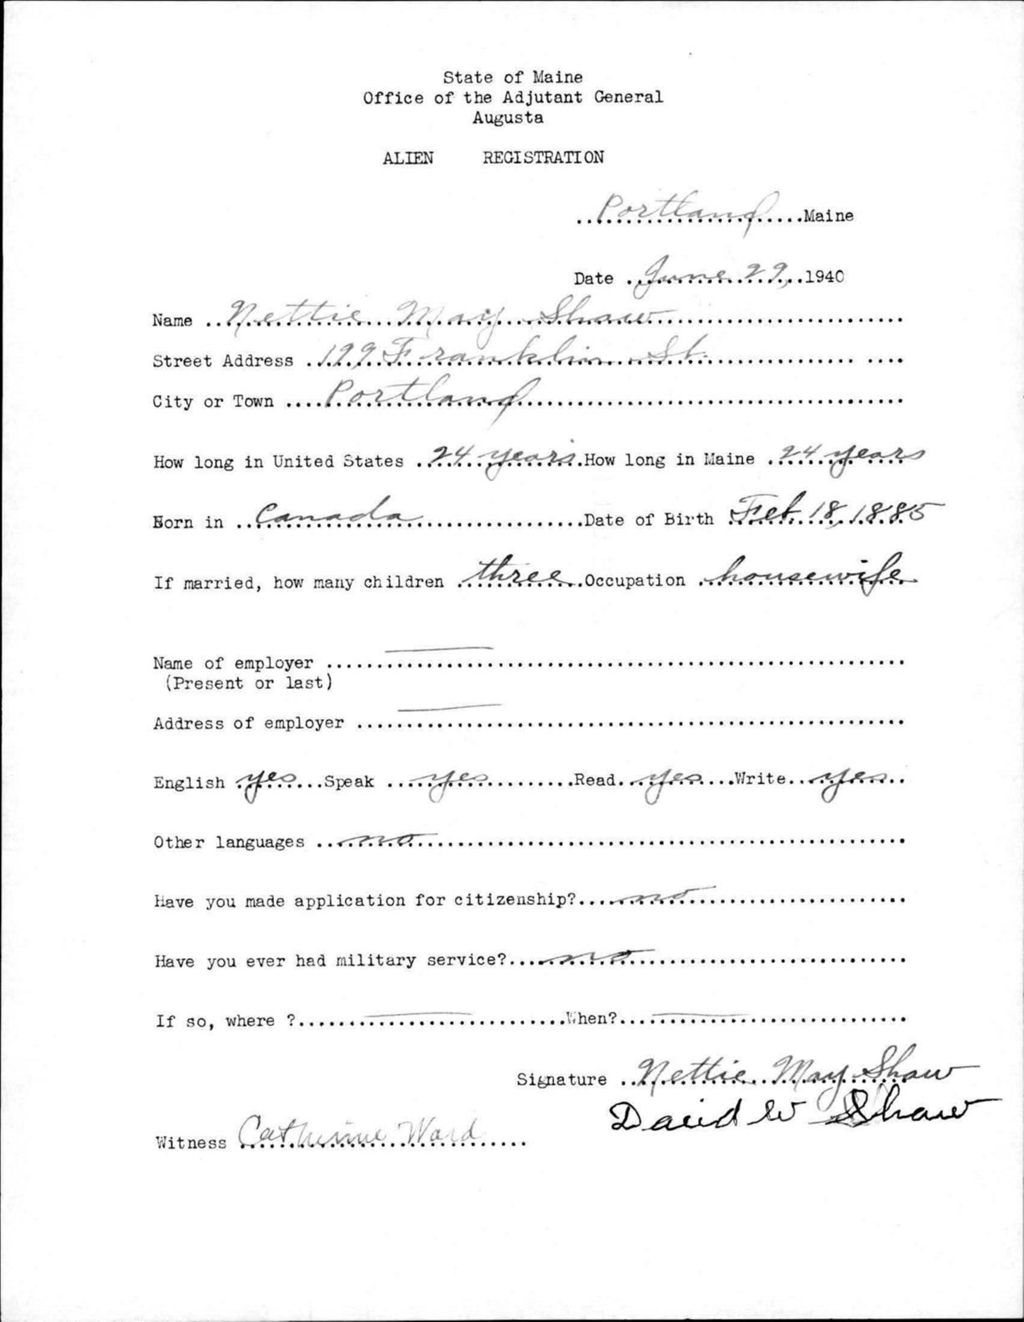 State of Maine
Office of the Adjutant General
Augusta
ALIEN REGISTRATION
Portland Maine
Date June 29, 1940
Name Nettie May Shaw
Street Address 199 Franklin St.
City or Town Portland
How long in United States 24 years How long in Maine 24 years
Born in Canada Date of Birth Feb. 18, 1885
If married, how many children three Occupation housewife
Name of employer
(Present or last)
Address of employer
English yes Speak yes Read yes Write yes
Other languages no
Have you made application for citizenship? no
Have you ever had military service? no
If so, where ? When?
Signature Nettie May Shaw
David W Shaw
Witness Catherine Ward